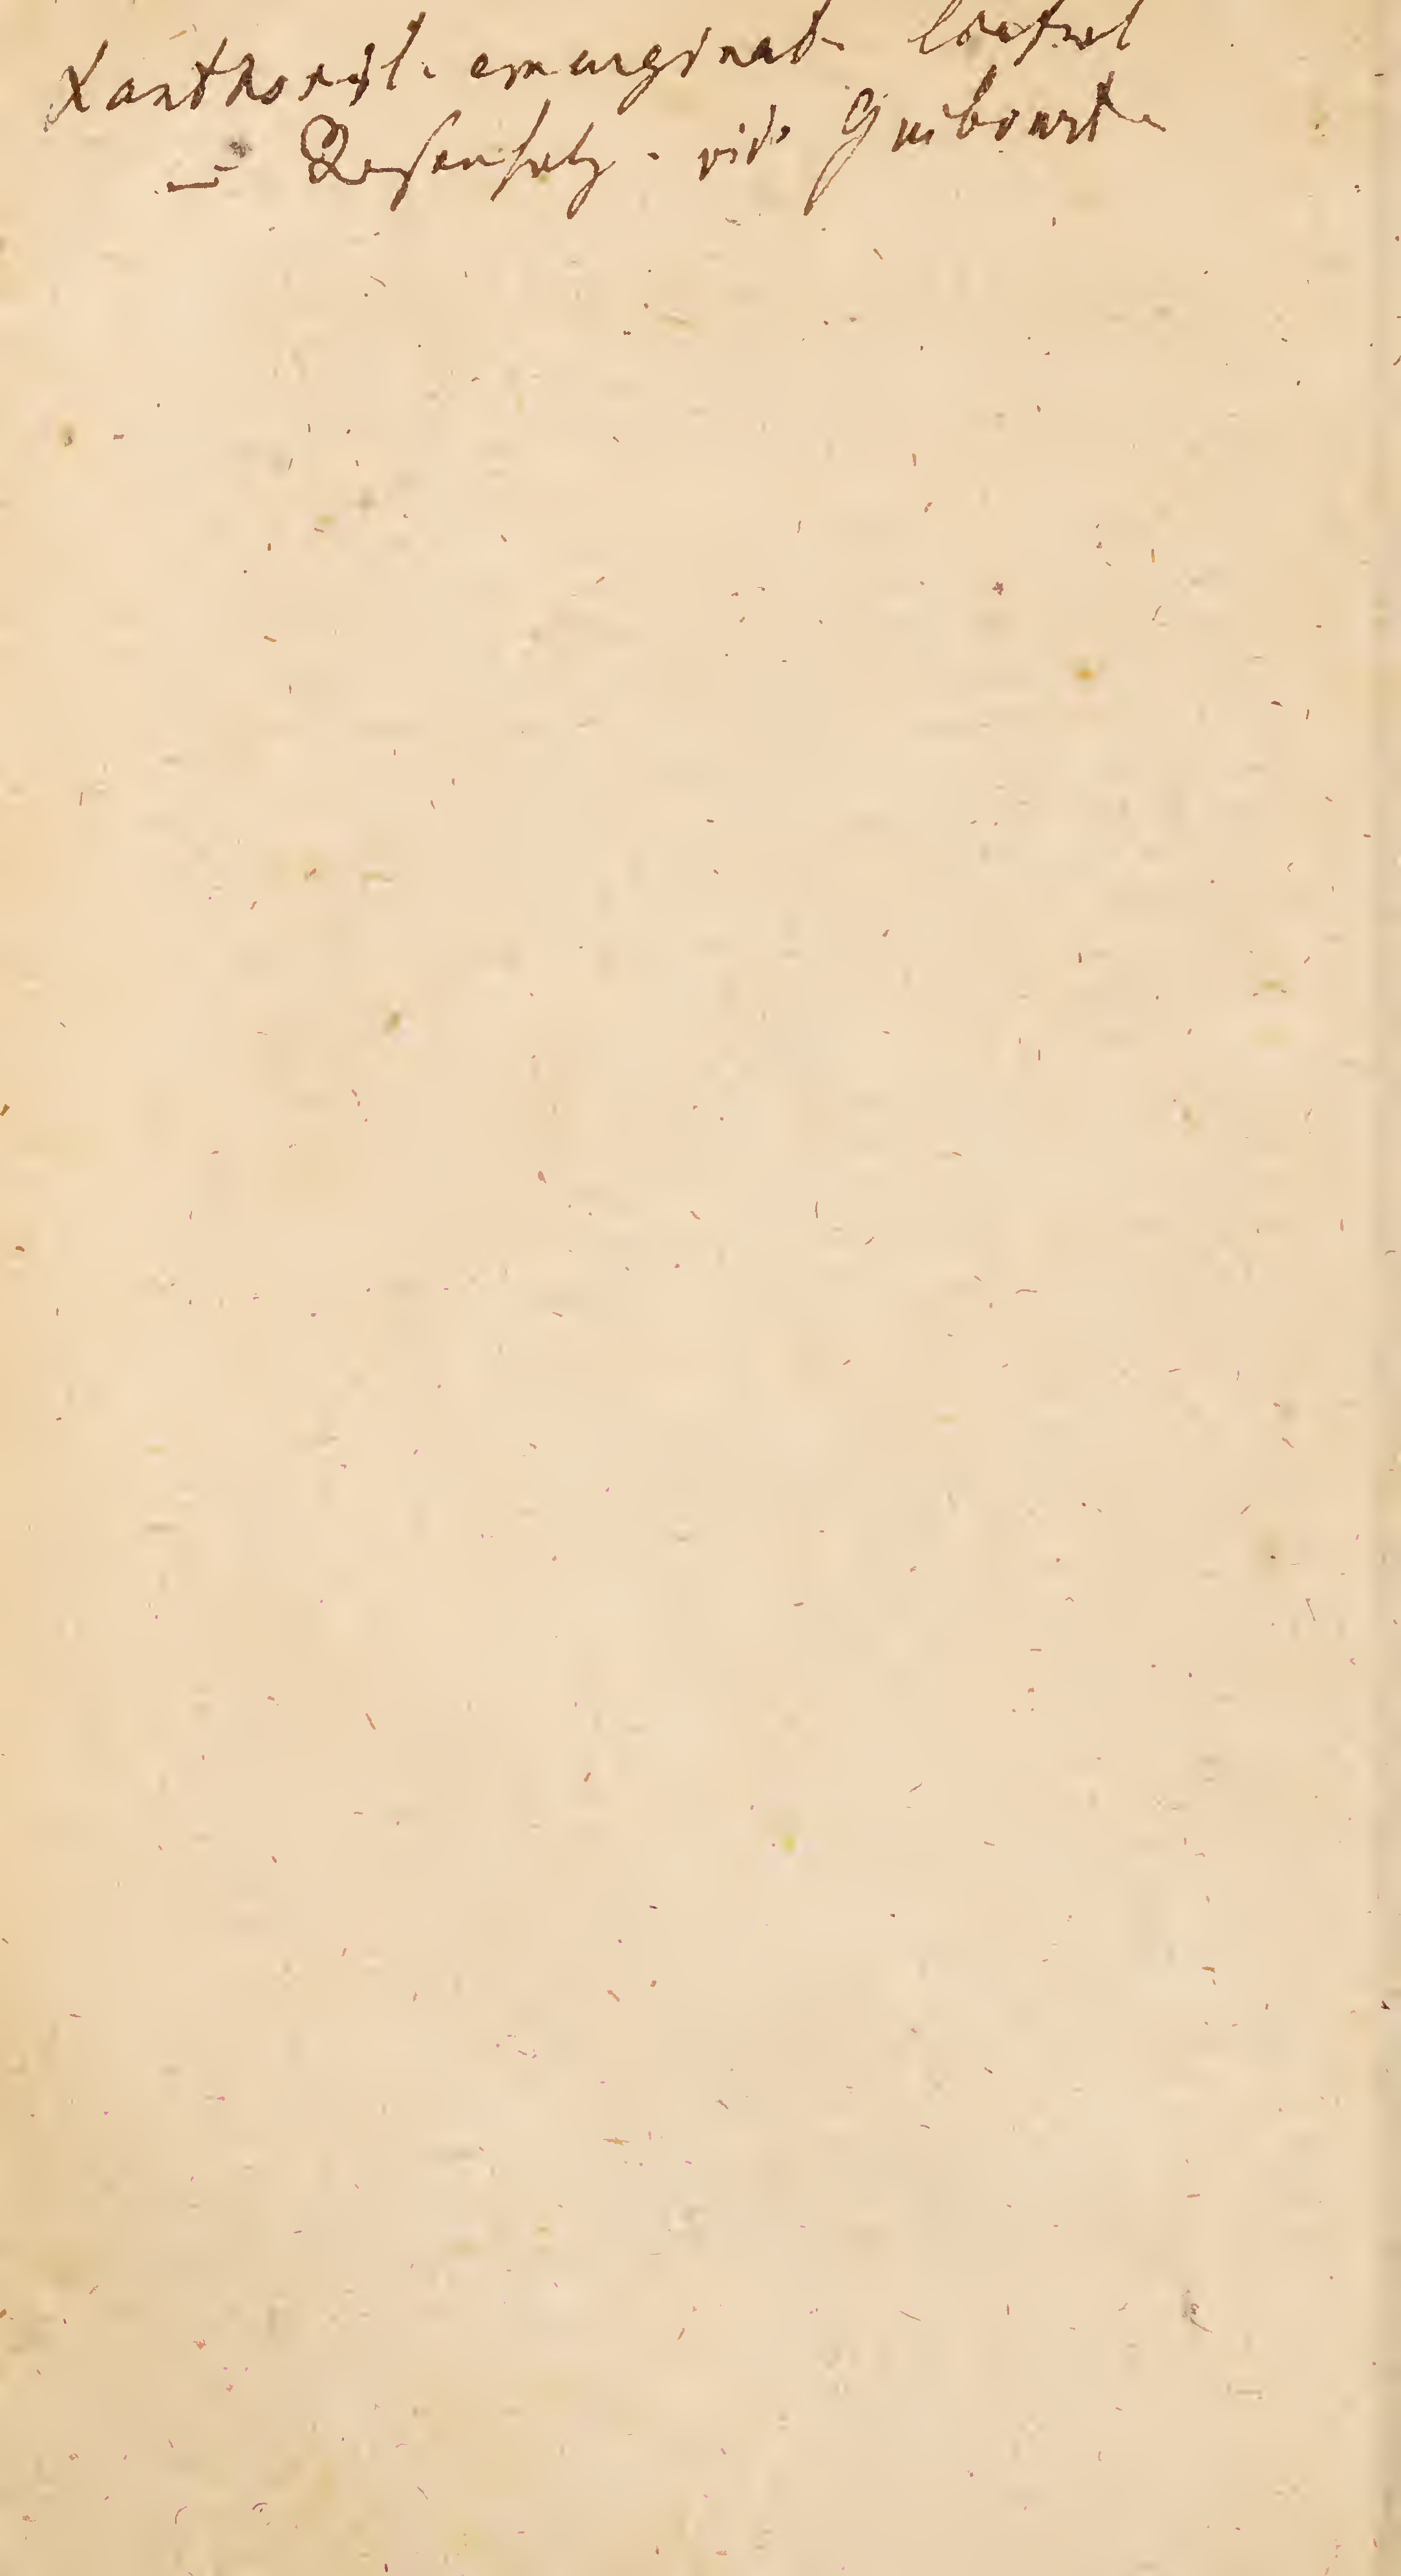 Xanthoxyl. emarginat. liefert
— Rosenholz. vid. Guibourt.